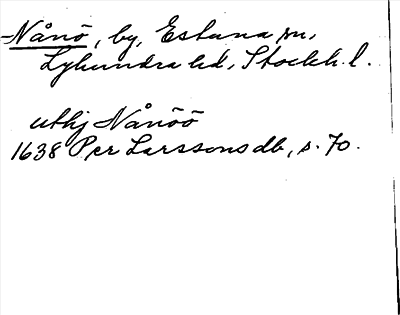 Nånö, by, Estuna sn,
Lyhundra hd, Stockh. l.
uthj Nånöö
1638 Per Larssons db, s. 70.